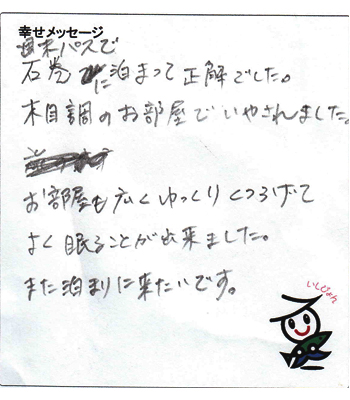 幸せメッセージ
週末パスで
石巻に泊まって正解でした。
木目調のお部屋でいやされました。
お部屋も広くゆっくりくつろげて
よく眠ることが出来ました。
また泊まりに来たいです。
いしぴょん